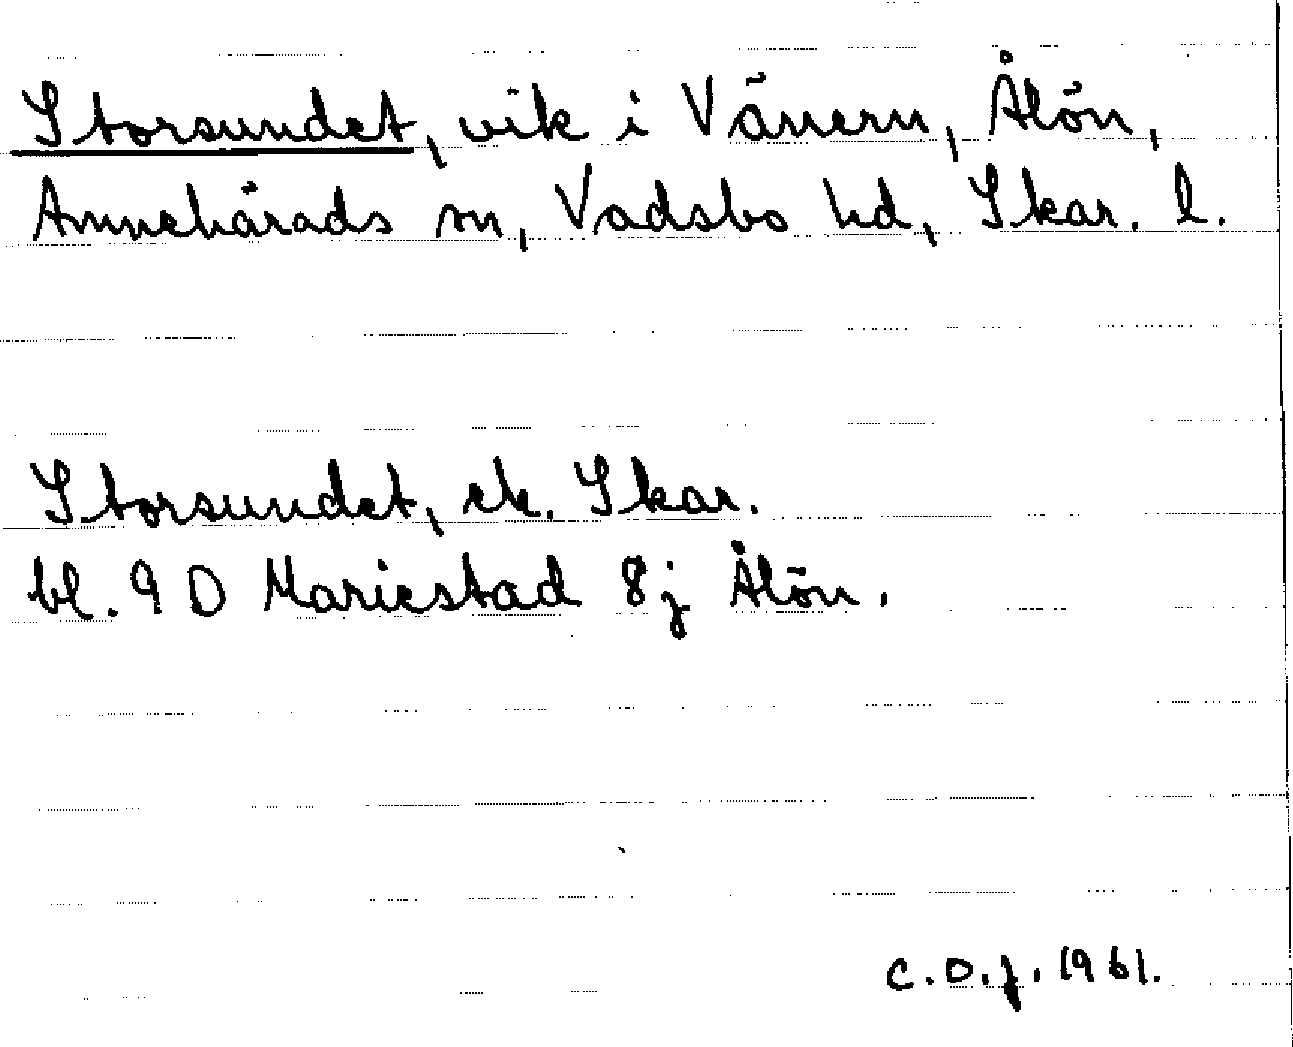 Storsundet, vik i Vänern, Ålön,
Amnehärads sn, Vadsbo hd, Skar. l.
Storsundet, ek. Skar.
bl. 9 D Mariestad 8j Ålön.
C.O.J. 1961.